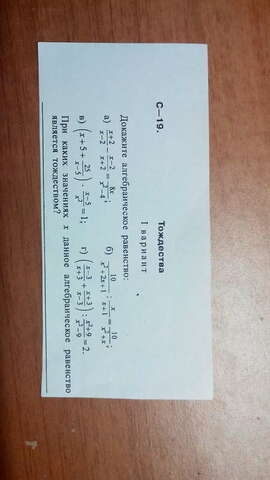 С—19. Тождества
I вариант
Докажите алгебраическое равенство:
а) (x+2)/(x−2) − (x−2)/(x+2) = 8x/(x²−4); б) 10/(x²+2x+1) : x/(x+1) = 10/(x³+x);
в) (x+5+25/(x−5)) · (x−5)/x² = 1; г) ((x−3)/(x+3) + (x+3)/(x−3)) : (x²+9)/(x²−9) = 2.
При каких значениях x данное алгебраическое равенство
является тождеством?